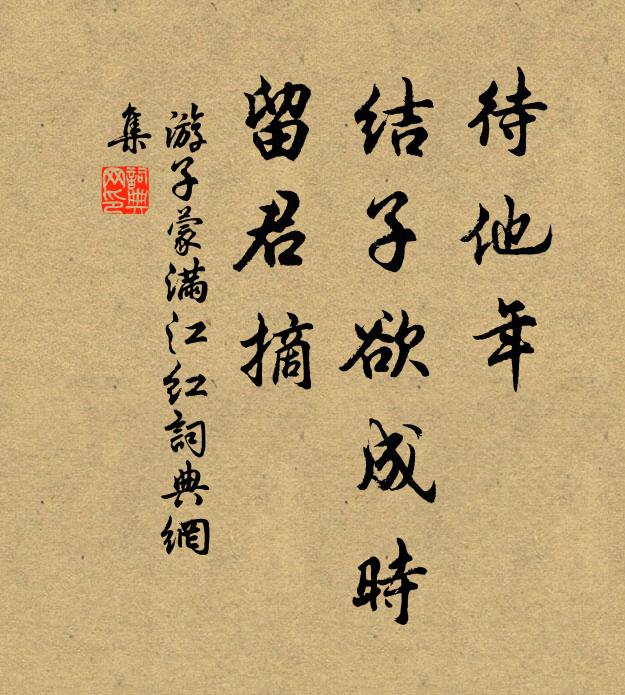 待他年
結子欲成時
留君摘
游子蒙滿江紅詞典網
集
詞典
网印